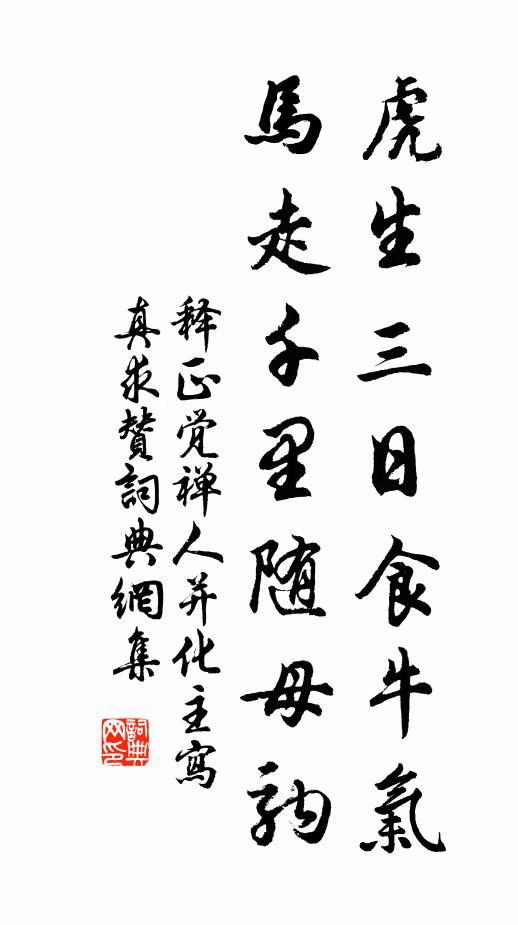 虎生三日食牛氣
馬走千里随母駒
释正觉禅人并化主寫
真求賛詞典網集
詞典
网印